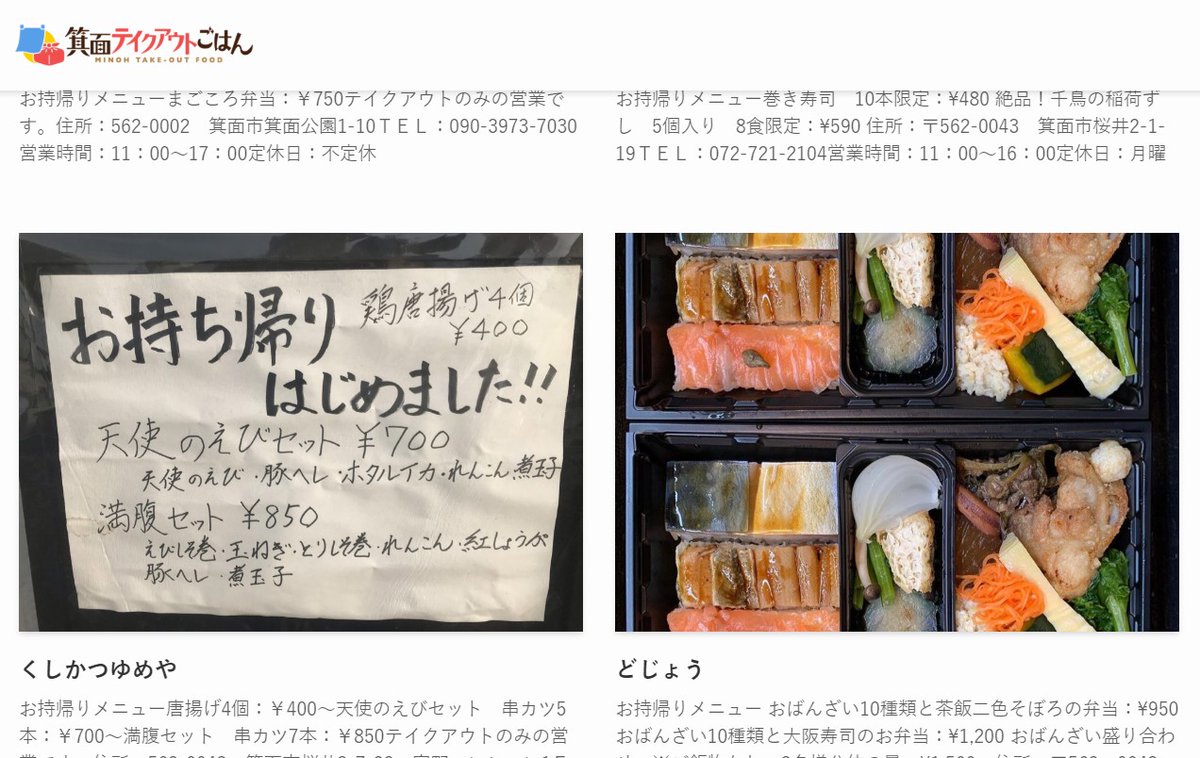 箕面テイクアウトごはん
MINOH TAKE-OUT FOOD
お持帰りメニューまごころ弁当：￥750テイクアウトのみの営業で
す。住所：562-0002　箕面市箕面公園1-10ＴＥＬ：090-3973-7030
営業時間：11：00〜17：00定休日：不定休
お持帰りメニュー巻き寿司　10本限定：¥480 絶品！千鳥の稲荷ず
し　5個入り　8食限定：¥590 住所：〒562-0043　箕面市桜井2-1-
19ＴＥＬ：072-721-2104営業時間：11：00〜16：00定休日：月曜
お持ち帰り
はじめました!!
鶏唐揚げ4個
¥400
天使のえびセット ¥700
天使のえび・豚ヘレ・ホタルイカ・れんこん・煮玉子
満腹セット ¥850
えびしそ巻・玉ねぎ・とりしそ巻・れんこん・紅しょうが
豚ヘレ・煮玉子
くしかつゆめや
お持帰りメニュー唐揚げ4個：￥400〜天使のえびセット　串カツ5
本：￥700〜満腹セット　串カツ7本：￥850テイクアウトのみの営
どじょう
お持帰りメニュー おばんざい10種類と茶飯二色そぼろの弁当：¥950
おばんざい10種類と大阪寿司のお弁当：¥1,200 おばんざい盛り合わ